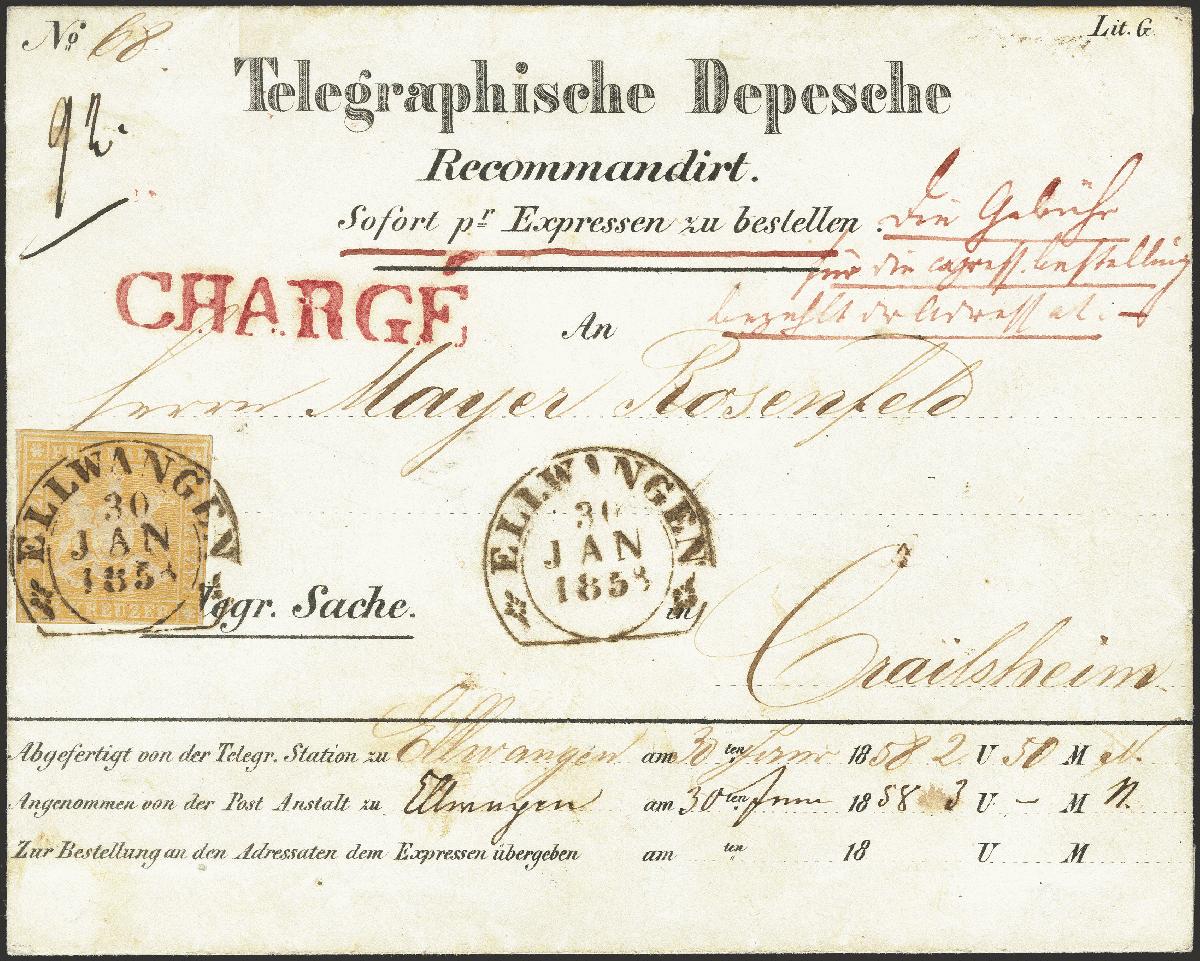 No. 68. Lit. G.
Telegraphische Depesche
Recommandirt.
Sofort pr Expressen zu bestellen.
Die Gebühr
für die express. bestellung
bezahlt der Adressat.
CHARGÉ
An
Herrn Mayer Rosenfeld
ELLWANGEN
30
JAN
1858
KREUZER
ELLWANGEN
30
JAN
1858
Telegr. Sache. in
Crailsheim
Abgefertigt von der Telegr. Station zu Ellwangen am 30 ten 1858 2 U 50 M N.
Angenommen von der Post Anstalt zu Ellwangen am 30 ten 1858 3 U – M N.
Zur Bestellung an den Adressaten dem Expressen übergeben am ten 18 U M